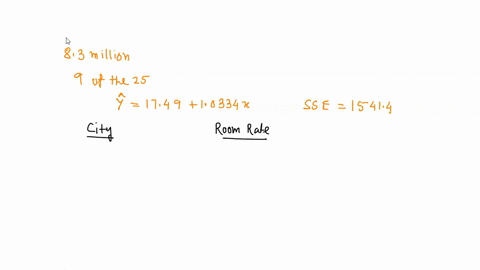 8.3 million
9 of the 25
Ŷ = 17.49 + 1.0334x SSE = 1541.4
City Room Rate